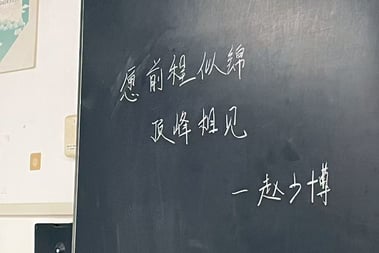 愿前程似锦
顶峰相见
—赵少博